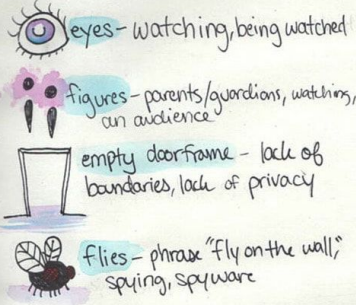 eyes - watching, being watched
figures - parents/guardians, watching,
an audience
empty doorframe - lack of
boundaries, lack of privacy
flies - phrase "fly on the wall",
spying, spyware